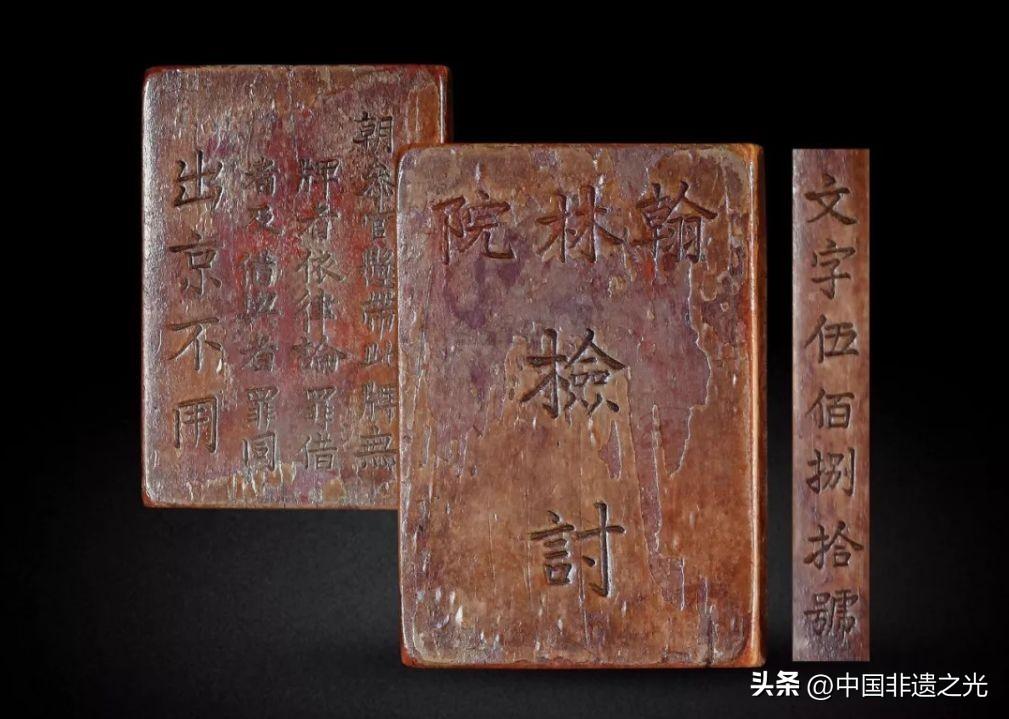 朝叅官懸帶此牌無
牌者依律論罪借
者及借與者罪同
出京不用
翰林院
檢討
文字伍佰捌拾號
头条 @中国非遗之光